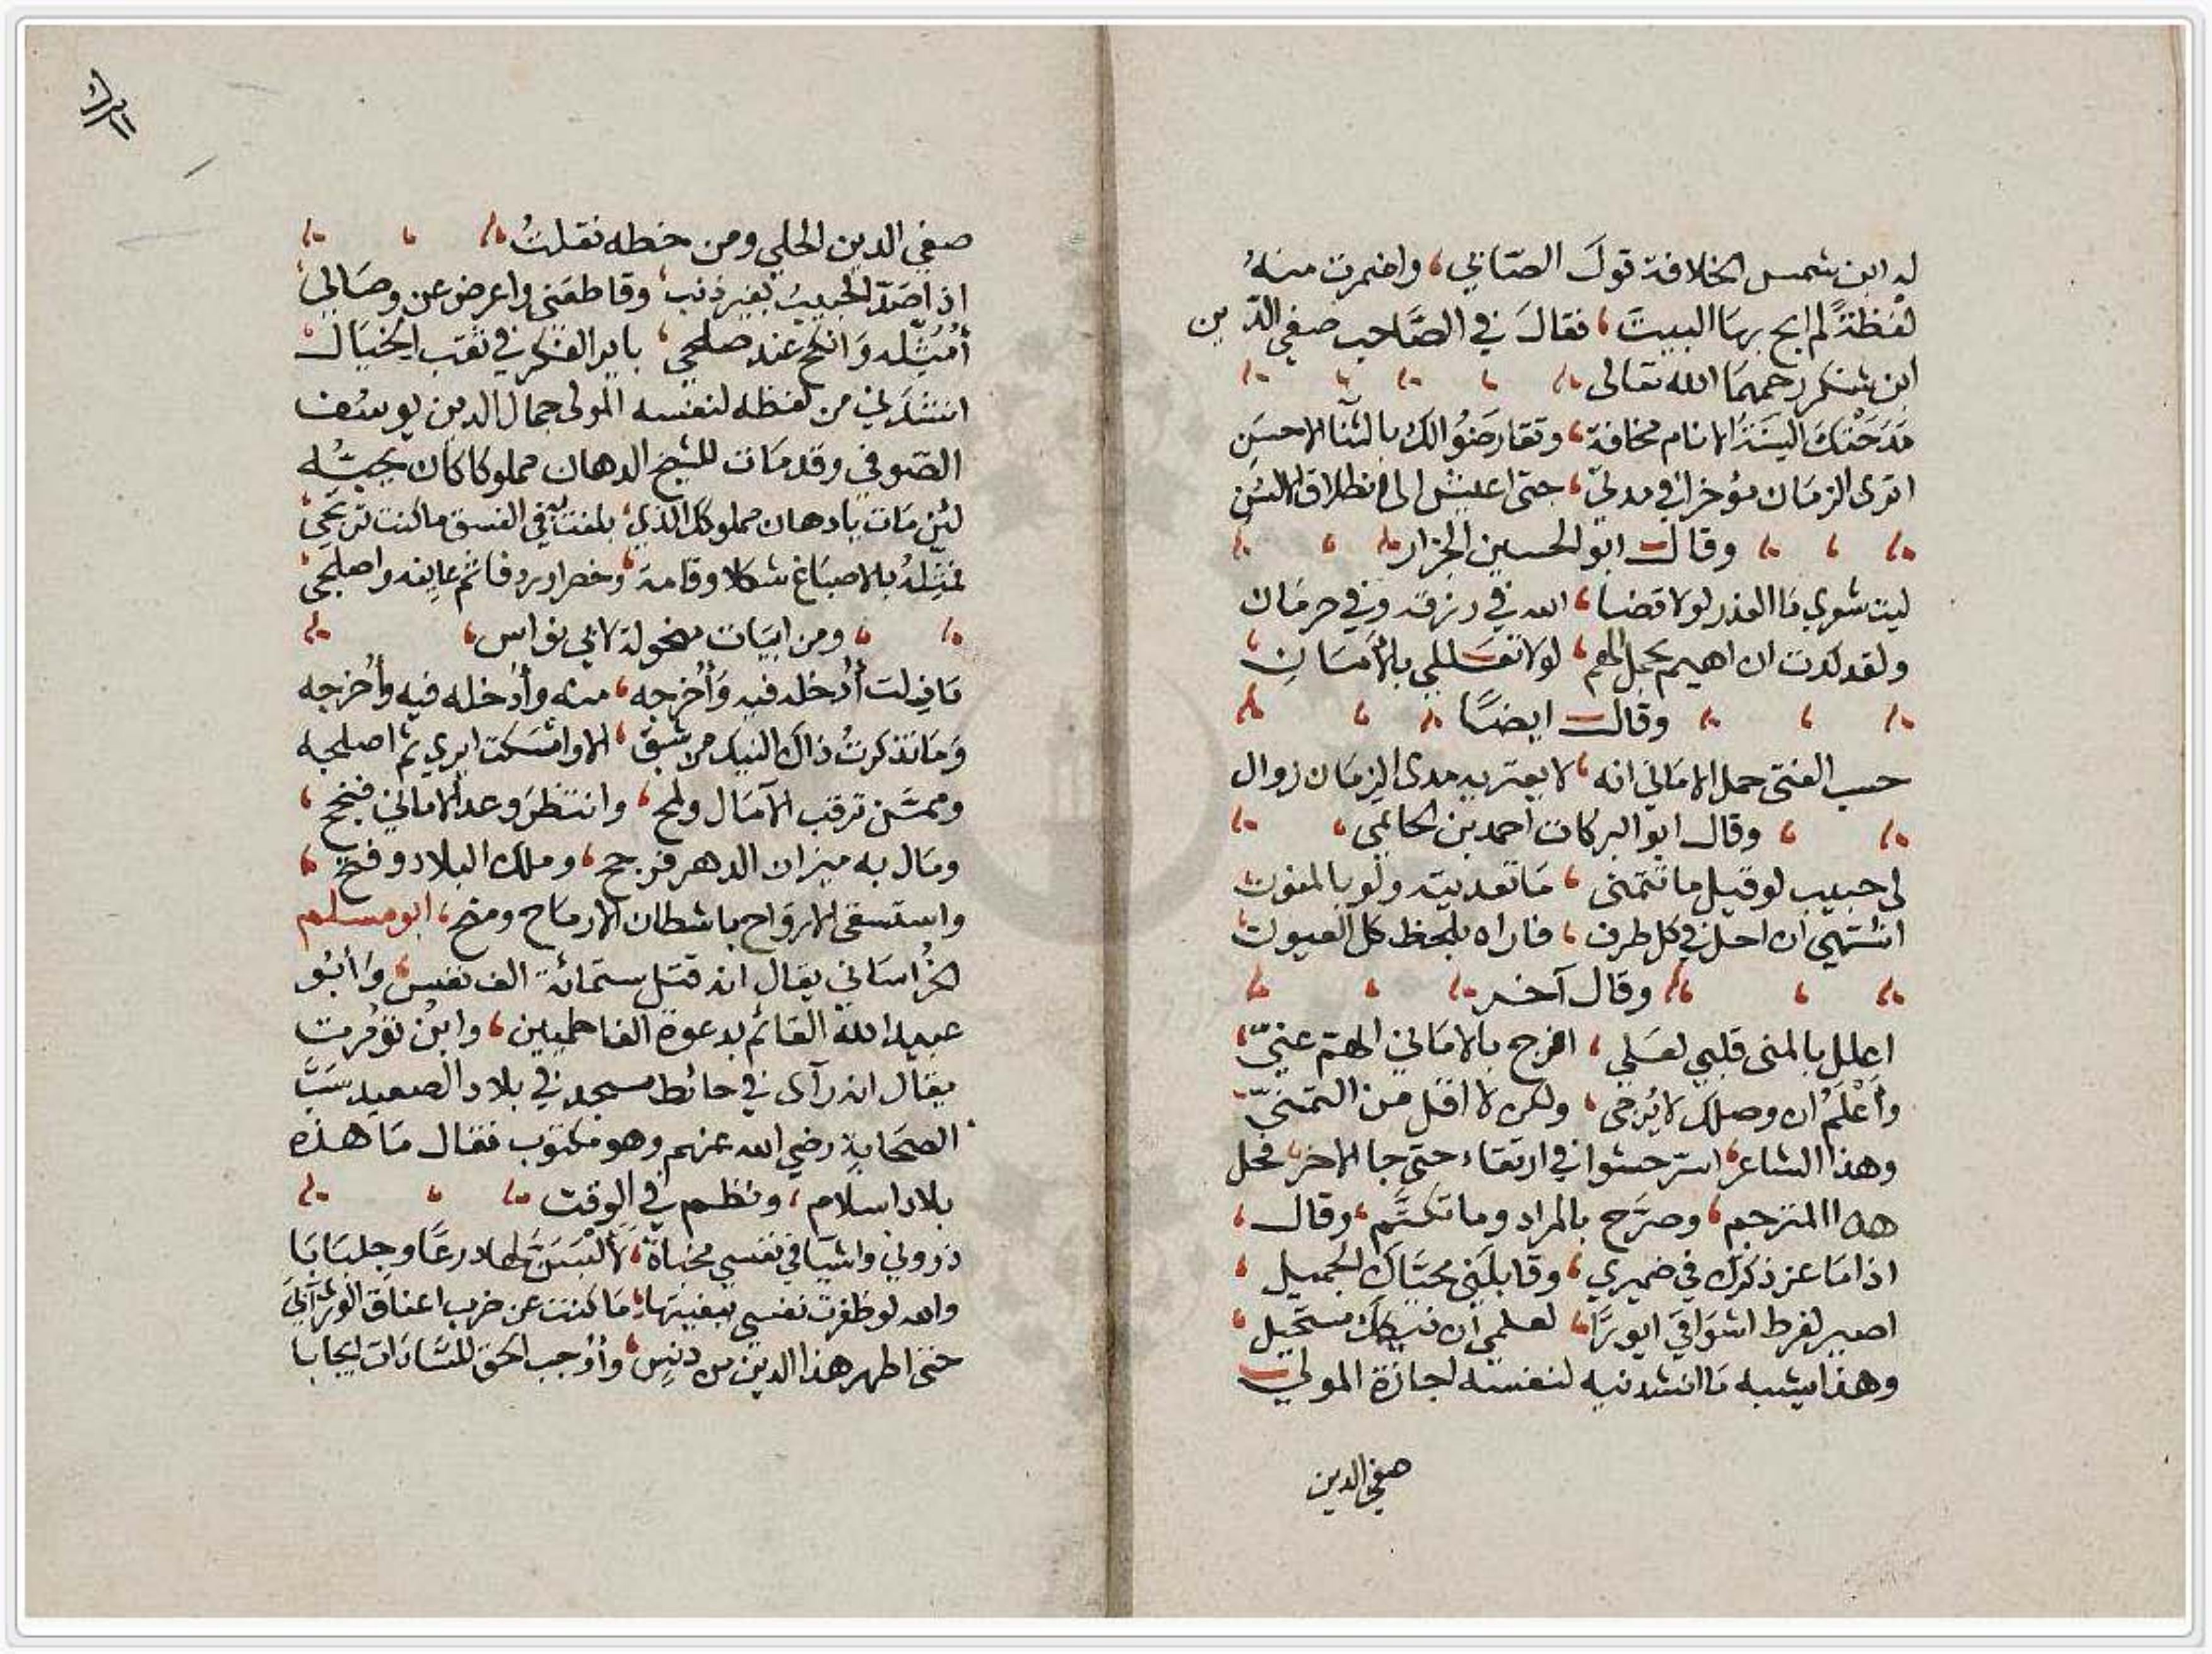 له ابن شمس الخلافة قول الصابي، واضمرت منه
لفظةً لم ابح بها البيت، فقال في الصاحب صفي الدين
ابن شكر رحمهما الله تعالى
مَدَحَتْكَ أَلسِنَةُ الانام مخافة، وتقارضوا لك بالثنا الاحسن
اترى الزمان مؤخرا في مدتي، حتى اعيش الى انطلاق الالسن
وقال ابو الحسين الجزار
ليت شعري ما العذر لولا قضا، الله في رزقه وفي حرمان
ولقد كدت ان اهيم بحمل الهم، لولا تعللي بالأمان
وقال ايضًا
حسب الفتى حمل الاماني انه، لا يعتريه مدى الزمان زوال
وقال ابو البركات احمد بن الحاتمي
لي حبيب لو قيل ما تتمنى، ما تعديته ولو بالمنون
اشتهي ان احل في كل طرف، فاراه بلحظ كل العيون
وقال آخر
اعلل بالمنى قلبي لعلي، افرج بالاماني الهم عنيّ
وأَعْلَمُ ان وصلك لا يُرجى، ولكن لا اقل من التمنيّ
وهذا الشاعر استر حشوا في ارتقاء، حتى جا الاخر فحل
هذا المترجم، وصرّح بالمراد وما تكتَّم، وقال،
اذا ما عز ذكرك في ضميري، وقابلني محياك الجميل
اصير لفرط اشواقي ايورًا، لعلمي ان نيكك مستحيل
وهذا يشبه ما انشدنيه لنفسه اجازة المولى
صفي الدين
صفي الدين الحلي ومن خطه نقلتُ
اذا صَدَّ الحبيبُ بغير ذنب، وقاطعني واعرض عن وصالي
أُمَثِّله وانكح عند صلحي، باير الفكر في ثقب الخيال
انشدني من لفظه لنفسه المولى جمال الدين يوسف
الصوفي وقد مات للشيخ الدهان مملوكا كان يحبُّه
لئن مات يا دهان مملوكك الذي، بلغت به في الفسق ما كنت ترتجي
فمثِّلهُ بالاصباغ شكلا وقامة، وخصرا وردفا ثم عاينه واصلجي
ومن ابيات منحولة لابي نواس،
ما زلت أُدخله فيه وأُخرجه، منه وأُدخله فيه وأُخرجه
وما تذكرتُ ذاك النيك من شبق، الا وامسكت ايري ثم اصلجه
وممن ترقب الآمال ولمح، وانتظر وعد الاماني فنجح،
ومال به ميزان الدهر فرجح، وملك البلاد وفتح،
واستسقى الارواح باشطان الارماح ومنح، ابو مسلم
الخُراساني يقال انه قتل ستمائة الف نفس، وأبو
عبيد الله القائم بدعوة الفاطميين، وابن تؤمرت
يقال انه رآى في حائط مسجد في بلاد الصعيد سَبَّ
الصحابة رضي الله عنهم وهو مكتوب فقال ما هذه
بلاد اسلام، ونظم في الوقت
ذروني واشيا في نفسي مخبأة، لأَلبسنَّ لها درعًا وجلبابا
والله لو ظفرت نفسي ببغيتها، ما كنت عن ضرب اعناق الورى آبى
حتى اطهر هذا الدين من دنس، وأُوجب الحق للسادات ايجابا